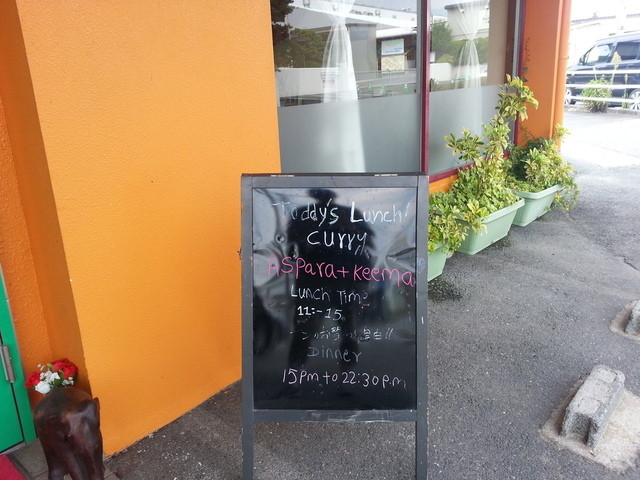 Teddy's Lunch!
curry
Aspara + Keema
Lunch Time
11:-15
Dinner
15pm to 22:30 p.m